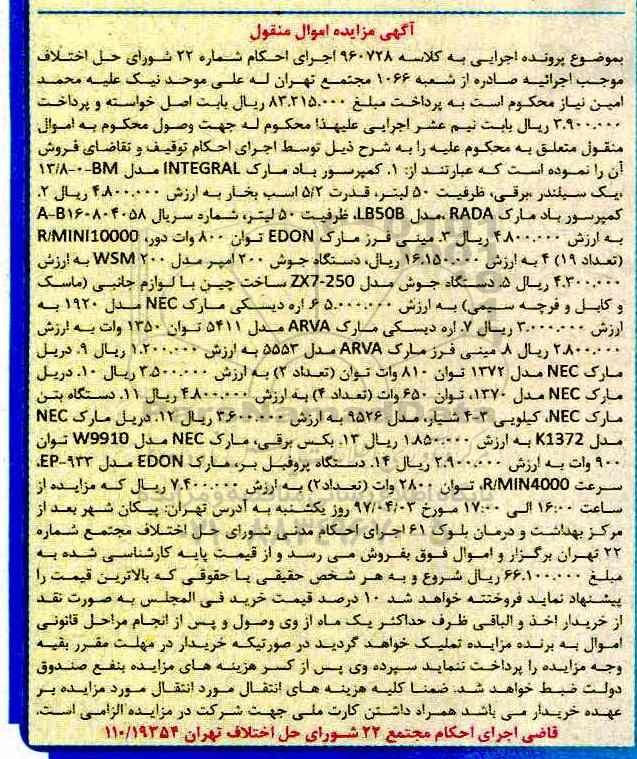 آگهی مزایده اموال منقول
بموضوع پرونده اجرایی به کلاسه ۹۶۰۷۲۸ اجرای احکام شماره ۲۲ شورای حل اختلاف
موجب اجرائیه صادره از شعبه ۱۰۶۶ مجتمع تهران له علی موحد نیک علیه محمد
امین نیاز محکوم است به پرداخت مبلغ ۸۳.۲۱۵.۰۰۰ ریال بابت اصل خواسته و پرداخت
۳.۹۰۰.۰۰۰ ریال بابت نیم عشر اجرایی علیهذا محکوم له جهت وصول محکوم به اموال
منقول متعلق به محکوم علیه را به شرح ذیل توسط اجرای احکام توقیف و تقاضای فروش
آن را نموده است که عبارتند از: ۱. کمپرسور باد مارک INTEGRAL مدل ۱۳/۸-۰-BM
،یک سیلندر ،برقی، ظرفیت ۵۰ لیتر، قدرت ۵/۲ اسب بخار به ارزش ۴.۸۰۰.۰۰۰ ریال ۲.
کمپرسور باد مارک RADA ،مدل LB50B، ظرفیت ۵۰ لیتر، شماره سریال A-B۱۶۰۸۰۴۰۵۸
به ارزش ۴.۸۰۰.۰۰۰ ریال ۳. مینی فرز مارک EDON توان ۸۰۰ وات دور، R/MINI10000
(تعداد ۱۹) ۴ به ارزش ۱۶.۱۵۰.۰۰۰ ریال، دستگاه جوش ۲۰۰ آمپر مدل WSM ۲۰۰ به ارزش
۴.۳۰۰.۰۰۰ ریال ۵. دستگاه جوش مدل ZX7-250 ساخت چین با لوازم جانبی (ماسک
و کابل و فرچه سیمی) به ارزش ۵.۰۰۰.۰۰۰ ۶. اره دیسکی مارک NEC مدل ۱۹۲۰ به
ارزش ۳.۰۰۰.۰۰۰ ریال ۷. اره دیسکی مارک ARVA مدل ۵۴۱۱ توان ۱۳۵۰ وات به ارزش
۲.۸۰۰.۰۰۰ ریال ۸. مینی فرز مارک ARVA مدل ۵۵۵۳ به ارزش ۱.۲۰۰.۰۰۰ ریال ۹. دریل
مارک NEC مدل ۱۳۷۲ توان ۸۱۰ وات توان (تعداد ۲) به ارزش ۳.۵۰۰.۰۰۰ ریال ۱۰. دریل
مارک NEC مدل ۱۳۷۰، توان ۶۵۰ وات (تعداد ۴) به ارزش ۴.۸۰۰.۰۰۰ ریال ۱۱. دستگاه بتن
مارک NEC، کیلویی ۳-۴ شیار، مدل ۹۵۲۶ به ارزش ۳.۶۰۰.۰۰۰ ریال ۱۲. دریل مارک NEC
مدل K1372 به ارزش ۱.۸۵۰.۰۰۰ ریال ۱۳. بکس برقی، مارک NEC مدل W9910 توان
۹۰۰ وات به ارزش ۲.۹۰۰.۰۰۰ ریال ۱۴. دستگاه پروفیل بر، مارک EDON مدل EP-۹۳۳،
سرعت R/MIN4000، توان ۲۸۰۰ وات (تعداد۲) به ارزش ۷.۴۰۰.۰۰۰ ریال که مزایده از
ساعت ۱۶:۰۰ الی ۱۷:۰۰ مورخ ۹۷/۰۴/۰۳ روز یکشنبه به آدرس تهران: پیکان شهر بعد از
مرکز بهداشت و درمان بلوک ۶۱ اجرای احکام مدنی شورای حل اختلاف مجتمع شماره
۲۲ تهران برگزار و اموال فوق بفروش می رسد و از قیمت پایه کارشناسی شده به
مبلغ ۶۶.۱۰۰.۰۰۰ ریال شروع و به هر شخص حقیقی یا حقوقی که بالاترین قیمت را
پیشنهاد نماید فروختته خواهد شد ۱۰ درصد قیمت خرید فی المجلس به صورت نقد
از خریدار اخذ و الباقی ظرف حداکثر یک ماه از وی وصول و پس از انجام مراحل قانونی
اموال به برنده مزایده تملیک خواهد گردید در صورتیکه خریدار در مهلت مقرر بقیه
وجه مزایده را پرداخت ننماید سپرده وی پس از کسر هزینه های مزایده بنفع صندوق
دولت ضبط خواهد شد. ضمنا کلیه هزینه های انتقال مورد انتقال مورد مزایده بر
عهده خریدار می باشد همراه داشتن کارت ملی جهت شرکت در مزایده الزامی است.
قاضی اجرای احکام مجتمع ۲۲ شورای حل اختلاف تهران ۱۱۰/۱۹۳۵۴